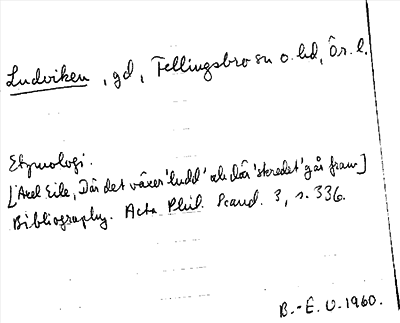 Ludviken, gd, Fellingsbro sn o. hd, Ör. l.
Etymologi.
[Axel Eile, Där det växer 'ludd' och där 'skredet' går fram]
Bibliography. Acta Phil. Scand. 3, s. 336.
B.-E. U. 1960.